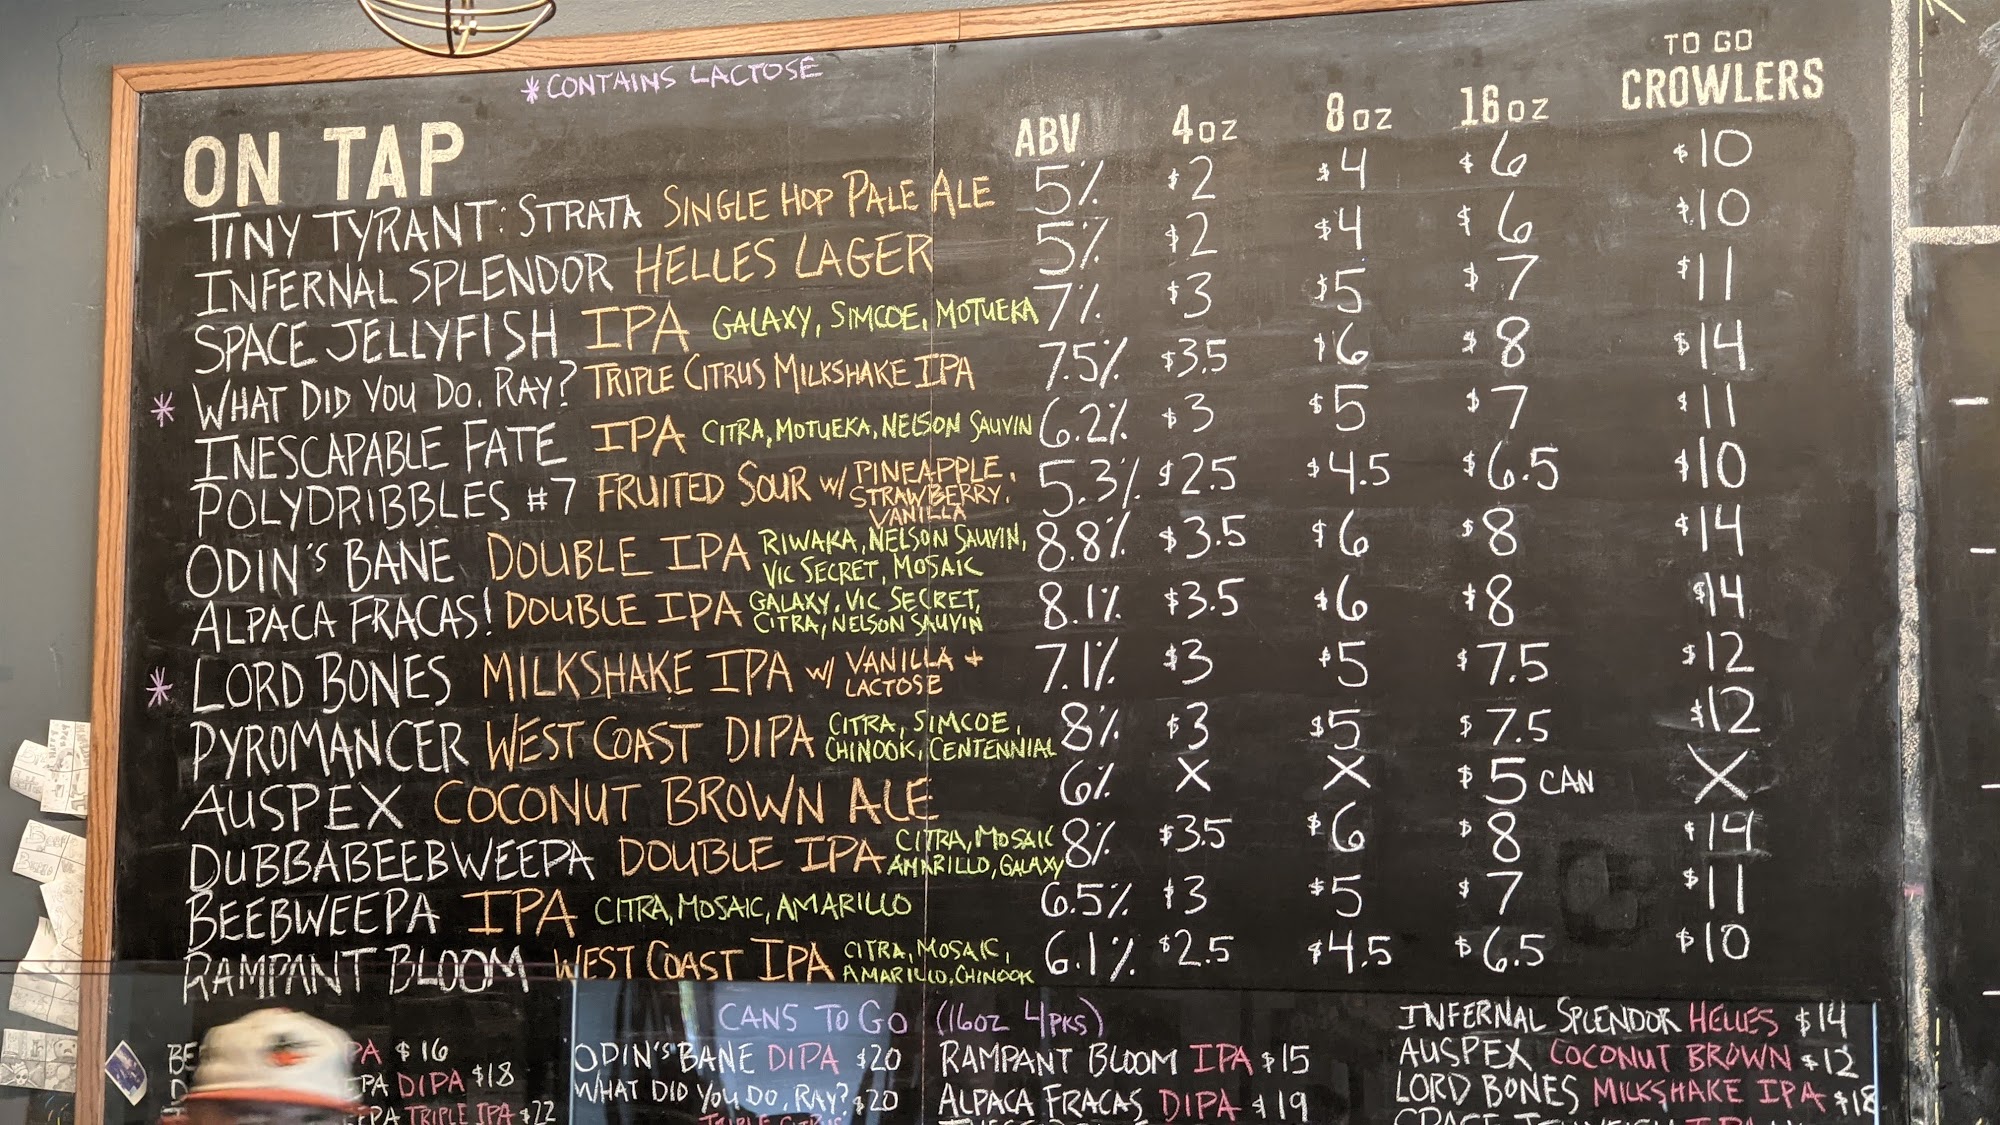 *CONTAINS LACTOSE
TO GO
CROWLERS
ON TAP ABV 4oz 8oz 16oz
TINY TYRANT: STRATA SINGLE HOP PALE ALE 5% $2 $4 $6 $10
INFERNAL SPLENDOR HELLES LAGER 5% $2 $4 $6 $10
SPACE JELLYFISH IPA GALAXY, SIMCOE, MOTUEKA 7% $3 $5 $7 $11
* WHAT DID YOU DO, RAY? TRIPLE CITRUS MILKSHAKE IPA 7.5% $3.5 $6 $8 $14
INESCAPABLE FATE IPA CITRA, MOTUEKA, NELSON SAUVIN 6.2% $3 $5 $7 $11
POLYDRIBBLES #7 FRUITED SOUR W/ PINEAPPLE, STRAWBERRY, VANILLA 5.3% $2.5 $4.5 $6.5 $10
ODIN'S BANE DOUBLE IPA RIWAKA, NELSON SAUVIN, VIC SECRET, MOSAIC 8.8% $3.5 $6 $8 $14
ALPACA FRACAS! DOUBLE IPA GALAXY, VIC SECRET, CITRA, NELSON SAUVIN 8.1% $3.5 $6 $8 $14
* LORD BONES MILKSHAKE IPA W/ VANILLA + LACTOSE 7.1% $3 $5 $7.5 $12
PYROMANCER WEST COAST DIPA CITRA, SIMCOE, CHINOOK, CENTENNIAL 8% $3 $5 $7.5 $12
AUSPEX COCONUT BROWN ALE 6% X X $5 CAN X
DUBBABEEBWEEPA DOUBLE IPA CITRA, MOSAIC AMARILLO, GALAXY 8% $3.5 $6 $8 $14
BEEBWEEPA IPA CITRA, MOSAIC, AMARILLO 6.5% $3 $5 $7 $11
RAMPANT BLOOM WEST COAST IPA CITRA, MOSAIC, AMARILLO, CHINOOK 6.1% $2.5 $4.5 $6.5 $10
CANS TO GO (16OZ 4PKS)
$16
DIPA $18
TRIPLE IPA $22
ODIN'S BANE DIPA $20
WHAT DID YOU DO, RAY? $20
TRIPLE CITRUS
RAMPANT BLOOM IPA $15
ALPACA FRACAS DIPA $19
INFERNAL SPLENDOR HELLES $14
AUSPEX COCONUT BROWN $12
LORD BONES MILKSHAKE IPA $18
SPACE JELLYFISH IPA